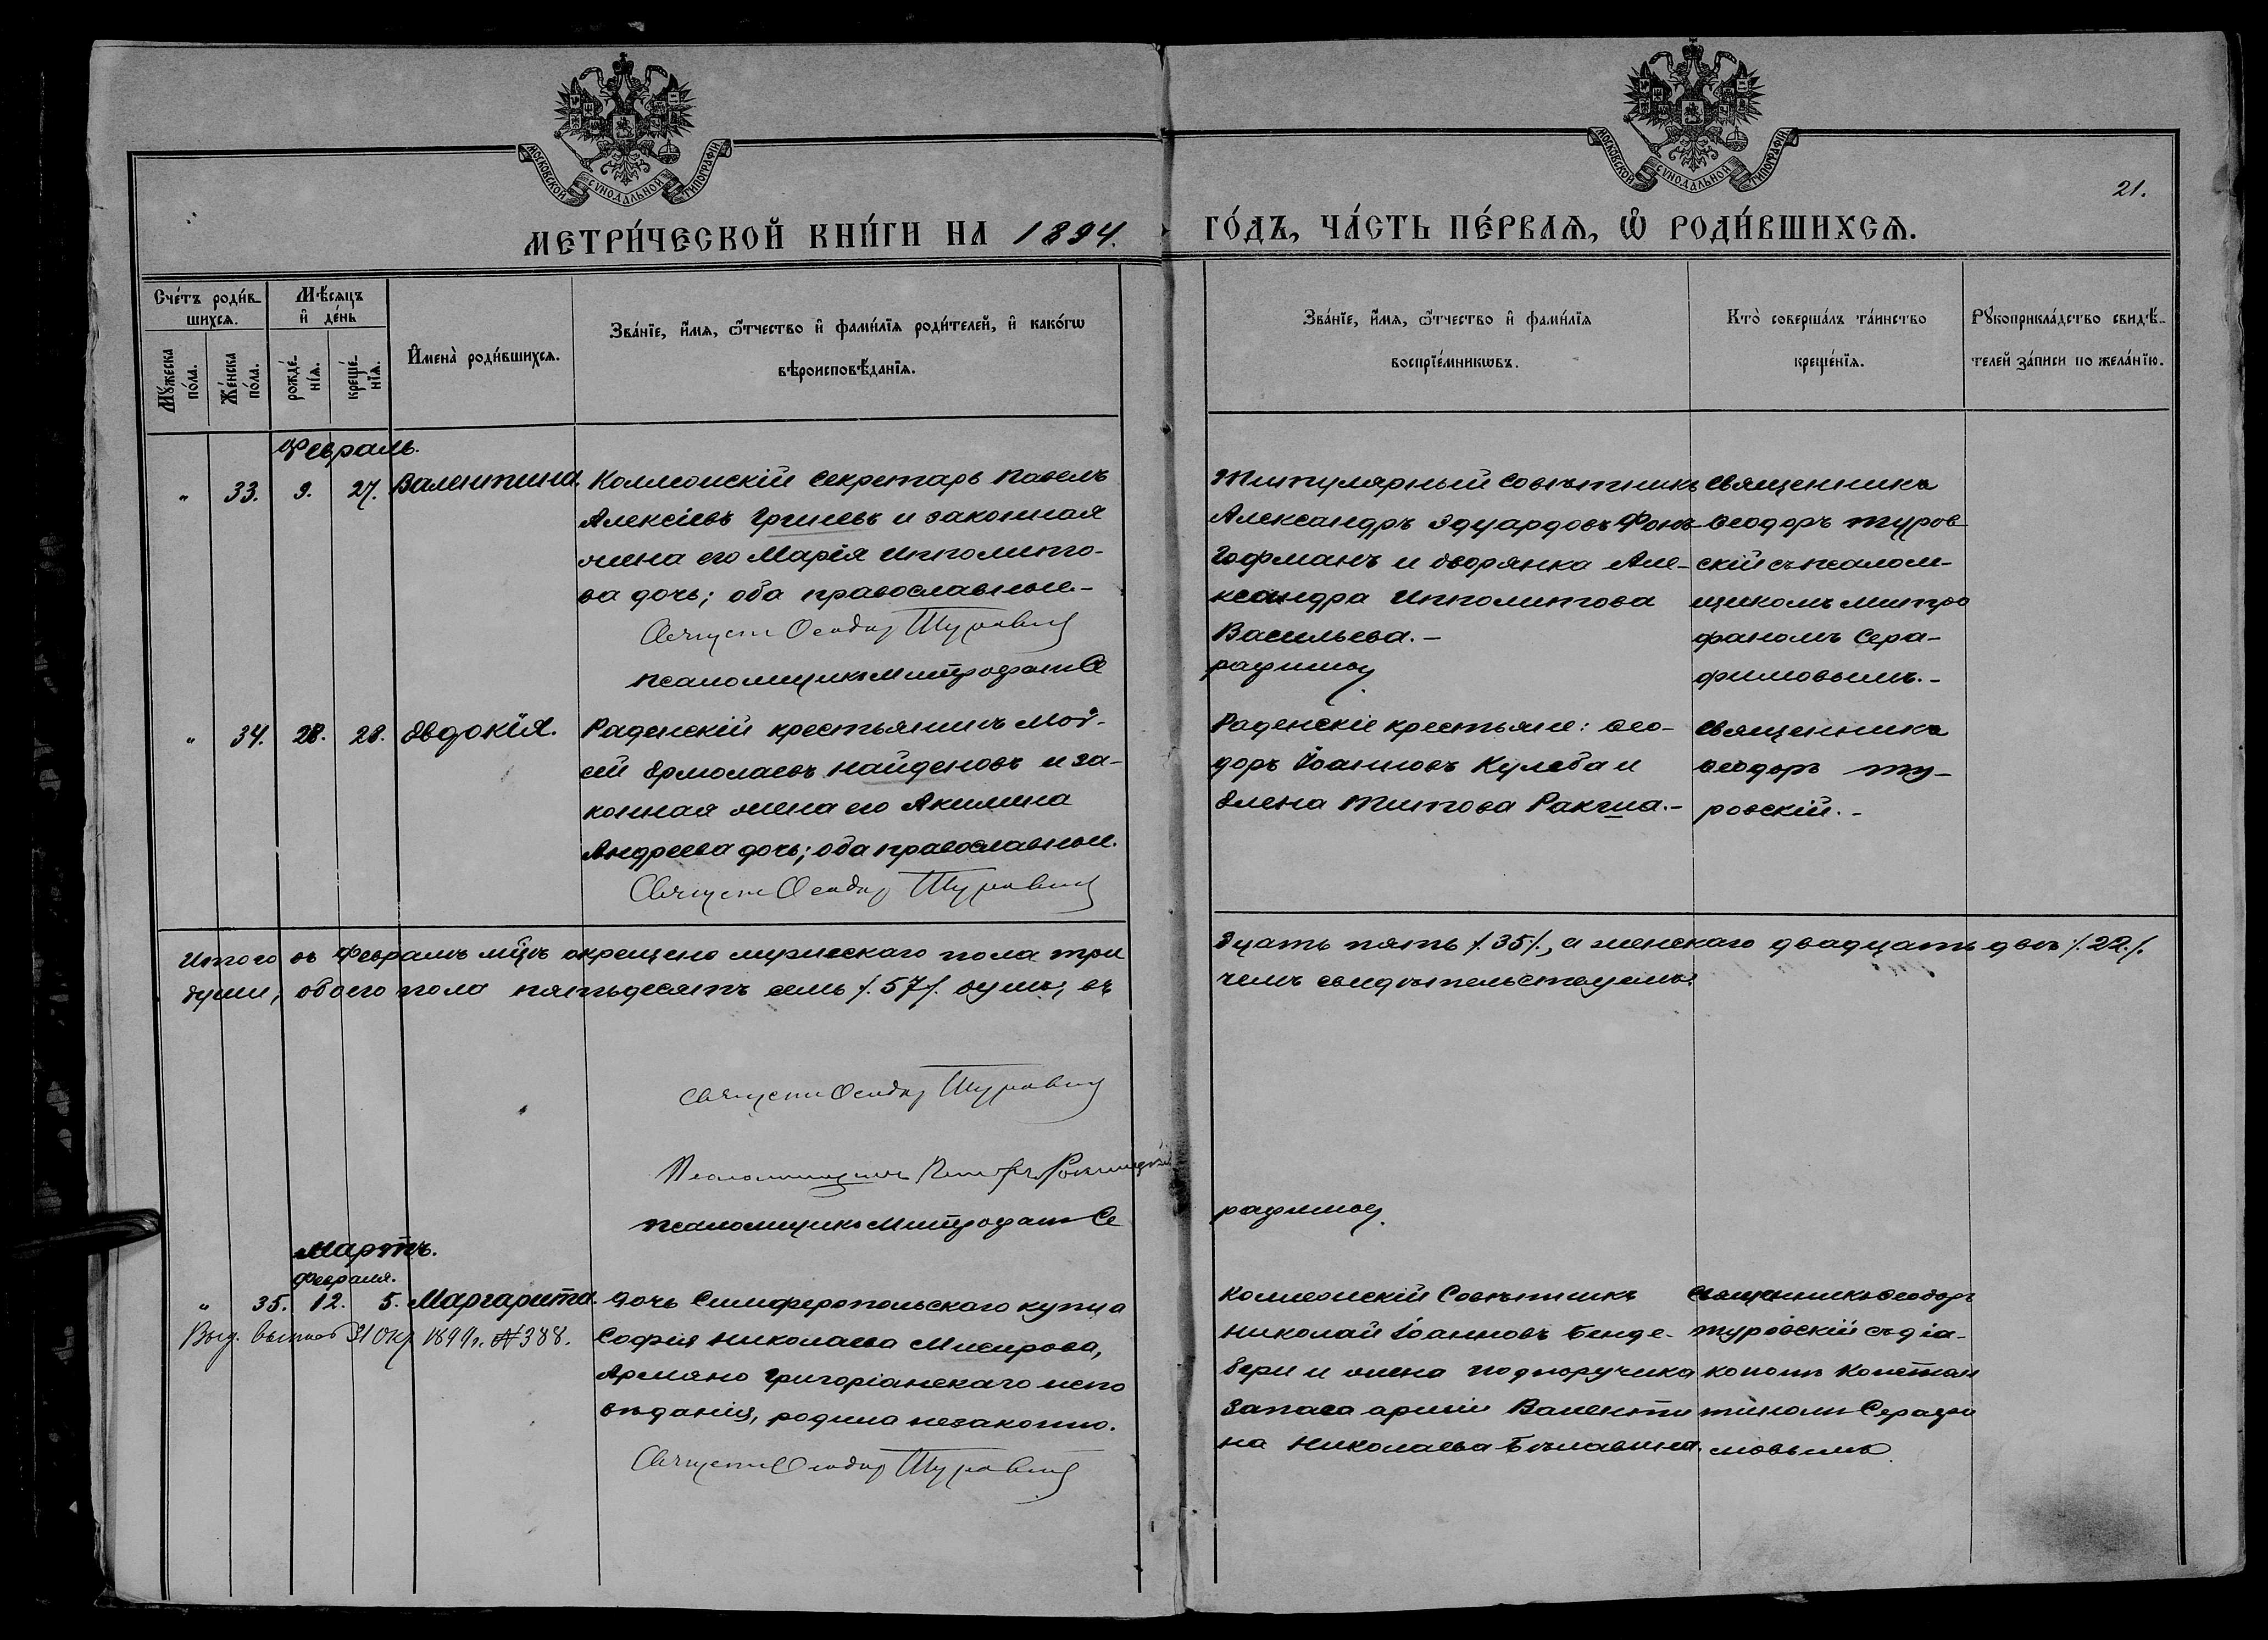 МОСКОВСКОЙ СѴНОДАЛЬНОЙ ТИПОГРАФІИ
МОСКОВСКОЙ СѴНОДАЛЬНОЙ ТИПОГРАФІИ
21.
МЕТРИ́ЧЕСКОЙ КНИ́ГИ НА 1894.
ГО́ДЪ, ЧА́СТЬ ПЕ́РВАѦ, Ѡ҆ РОДИ́ВШИХСѦ.
Сче́тъ роди́в-
шихсѧ.
Мѣ́сѧцъ
и҆ де́нь
Мꙋ́жеска
по́ла.
Же́нска
по́ла.
рожде́-
нїѧ.
креще́-
нїѧ.
И҆мена̀ роди́вшихсѧ.
Зва́нїе, и҆́мѧ, ѻ҆́тчество и҆ фами́лїѧ роди́телей, и҆ како́гѡ
вѣроисповѣ́данїѧ.
Зва́нїе, и҆́мѧ, ѻ҆́тчество и҆ фами́лїѧ
воспрїе́мникѡвъ.
Кто̀ соверша́лъ та́инство
креще́нїѧ.
Рꙋкоприкла́дство свидѣ́-
телей за́писи по жела́нїю.
Февраль.
" 33. 9. 27. Валентина.
Коллежскій Секретарь Павелъ
Алексіевъ и законная
жена его Марія Ипполито-
ва дочь; оба православные.-
Священ Ѳеодор Туровскій
псаломщикъ Митрофанъ Се
Титулярный Совѣтникъ
Александръ Эдуардовъ Фонъ-
Гофманъ и дворянка Але-
ксандра Ипполитова
Васильева.-
рафимов
Священникъ
Ѳеодоръ Туров-
скій съ псалом-
щикомъ Митро
фаномъ Сера-
фимовымъ.-
" 34. 28. 28. Евдокія.
Раденскій крестьянинъ Мой-
сей Ермолаевъ Найденовъ и за-
конная жена его Акилина
Андреева дочь; оба православные.
Священ Ѳеодор Туровскій
Раденскіе крестьяне: Ѳео-
доръ Іоанновъ Кулеба и
Елена Титова Ракша.-
Священникъ
Ѳеодоръ Ту-
ровскій.-
Итого въ Февралѣ мцѣ окрещено мужескаго пола три
дцать пять /.35/., а женскаго двадцать двѣ /.22./.
души, обоего пола пятьдесятъ семь /.57/. душъ, въ
чемъ свидѣтельствуемъ:
Священ Ѳеодор Туровскій
Псаломщикъ
псаломщикъ Митрофанъ Се
рафимов
Мартъ.
Февраля.
" 35. 12. 5. Маргарита.
Выд. выпись 31 Окт 1899 г. № 388.
Дочь Симферопольскаго купца
Софія Николаева Мисирова,
Армяно Григоріанскаго испо
вѣданія, родила незаконно.
Священ Ѳеодор Туровскій
Коллежскій Совѣтникъ
Николай Іоанновъ Бенде-
бери и жена подпоручика
запаса арміи Валенти
на Николаева
Священникъ Ѳеодоръ
Туровскій съ діа-
кономъ Констан
тиномъ Серафи
мовымъ.